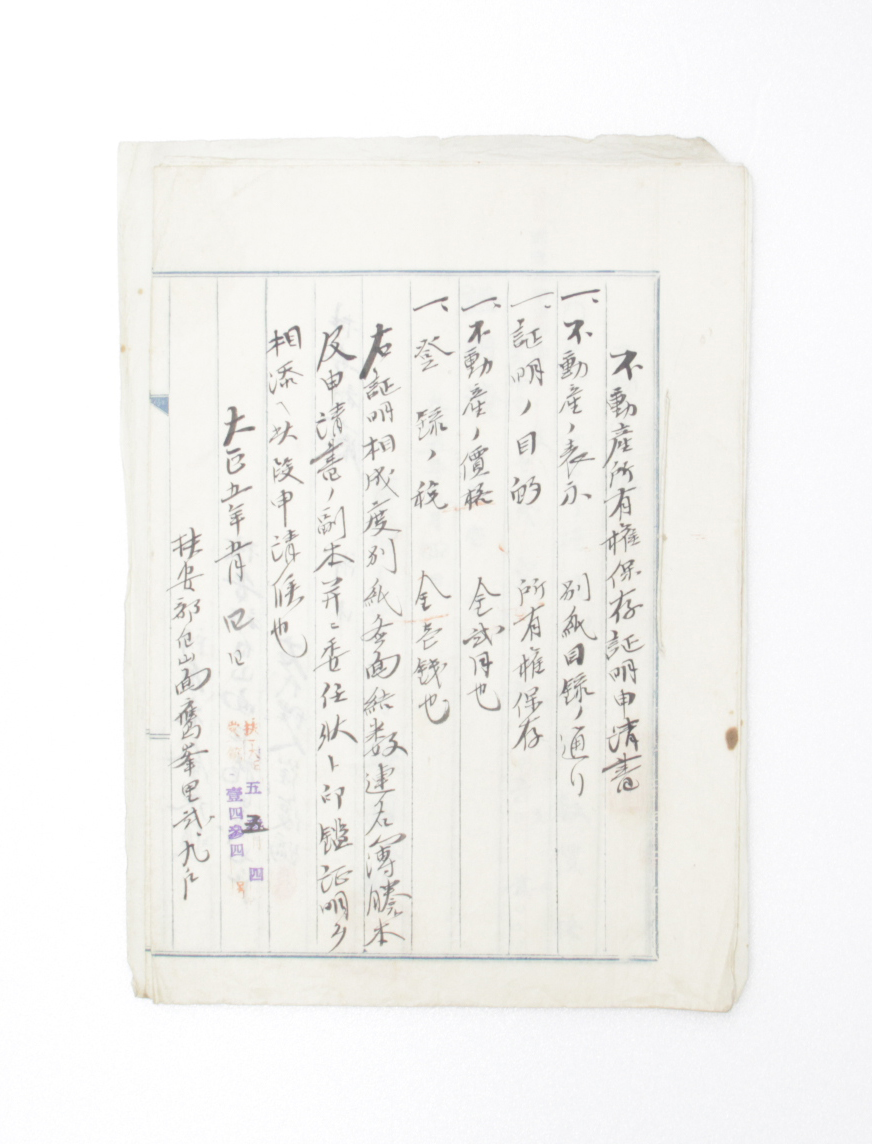 不動産所有權保存証明申請書
一、不動産ノ表示 別紙目録ノ通リ
一、証明ノ目的 所有権保存
一、不動産ノ價格 金貳円也
一、登録ノ税 金壱銭也
右証明相成度別紙 面結数連名簿謄本
及申請書ノ副本並ニ委任状ト印鑑証明ヲ
相添ヘ此段申請候也
大正五年五月四日
五 五月 四
壹四參四
扶安郡 山面鷹峯里貳九戸